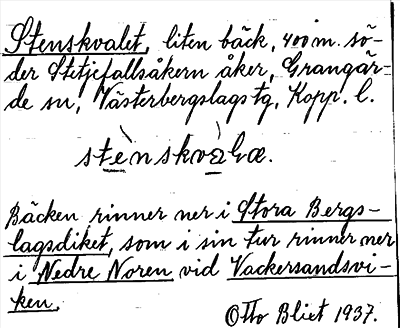 Stenskvalet, liten bäck, 400 m. sö-
der Stitjefallsåkern åker, Grangär-
de sn, Västerbergslags tg, Kopp. l.
stènskvàlæ.
Bäcken rinner ner i Stora Bergs-
lagsdiket, som i sin tur rinner ner
i Nedre Noren vid Vackersandsvi-
ken.
Otto Bliet 1937.